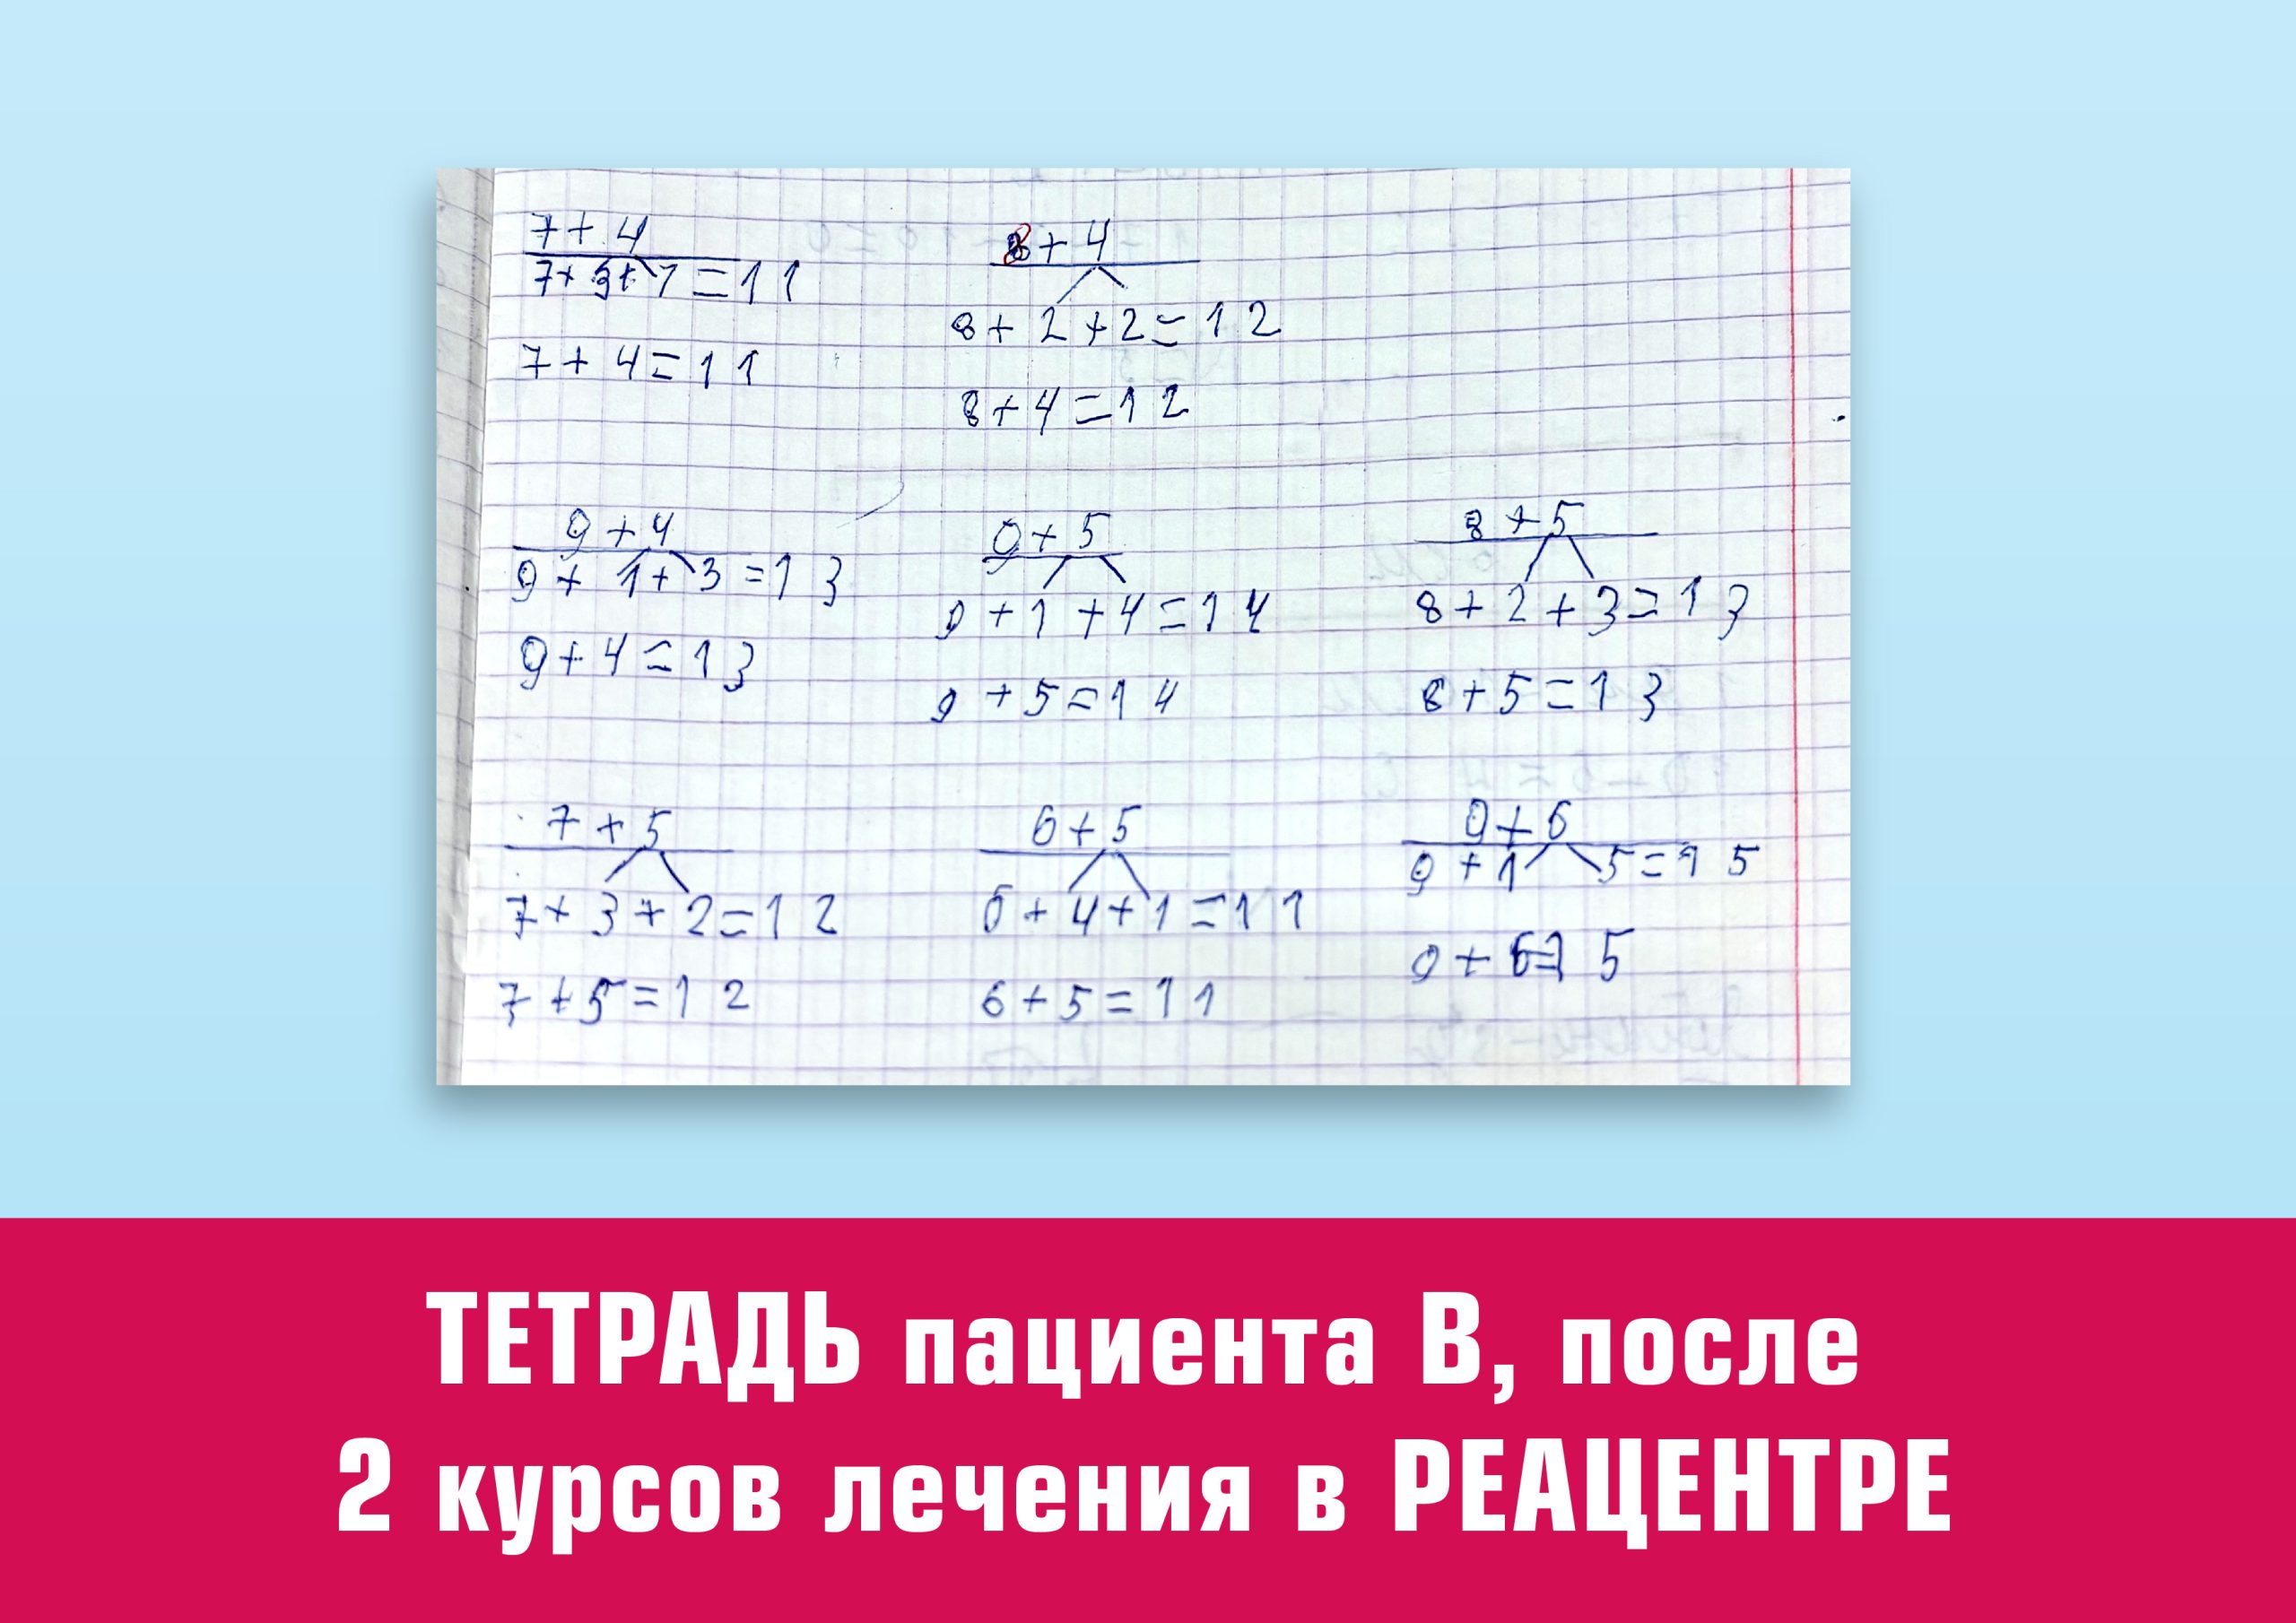 7+4 8+4
7+3+1=11
8+2+2=12
7+4=11
8+4=12
9+4 9+5 8+5
9+1+3=13
9+1+4=14 8+2+3=13
9+4=13
9+5=14 8+5=13
7+5 6+5 9+6
9+1 5=15
7+3+2=12 6+4+1=11
9+6=15
7+5=12 6+5=11
ТЕТРАДЬ пациента В, после
2 курсов лечения в РЕАЦЕНТРЕ